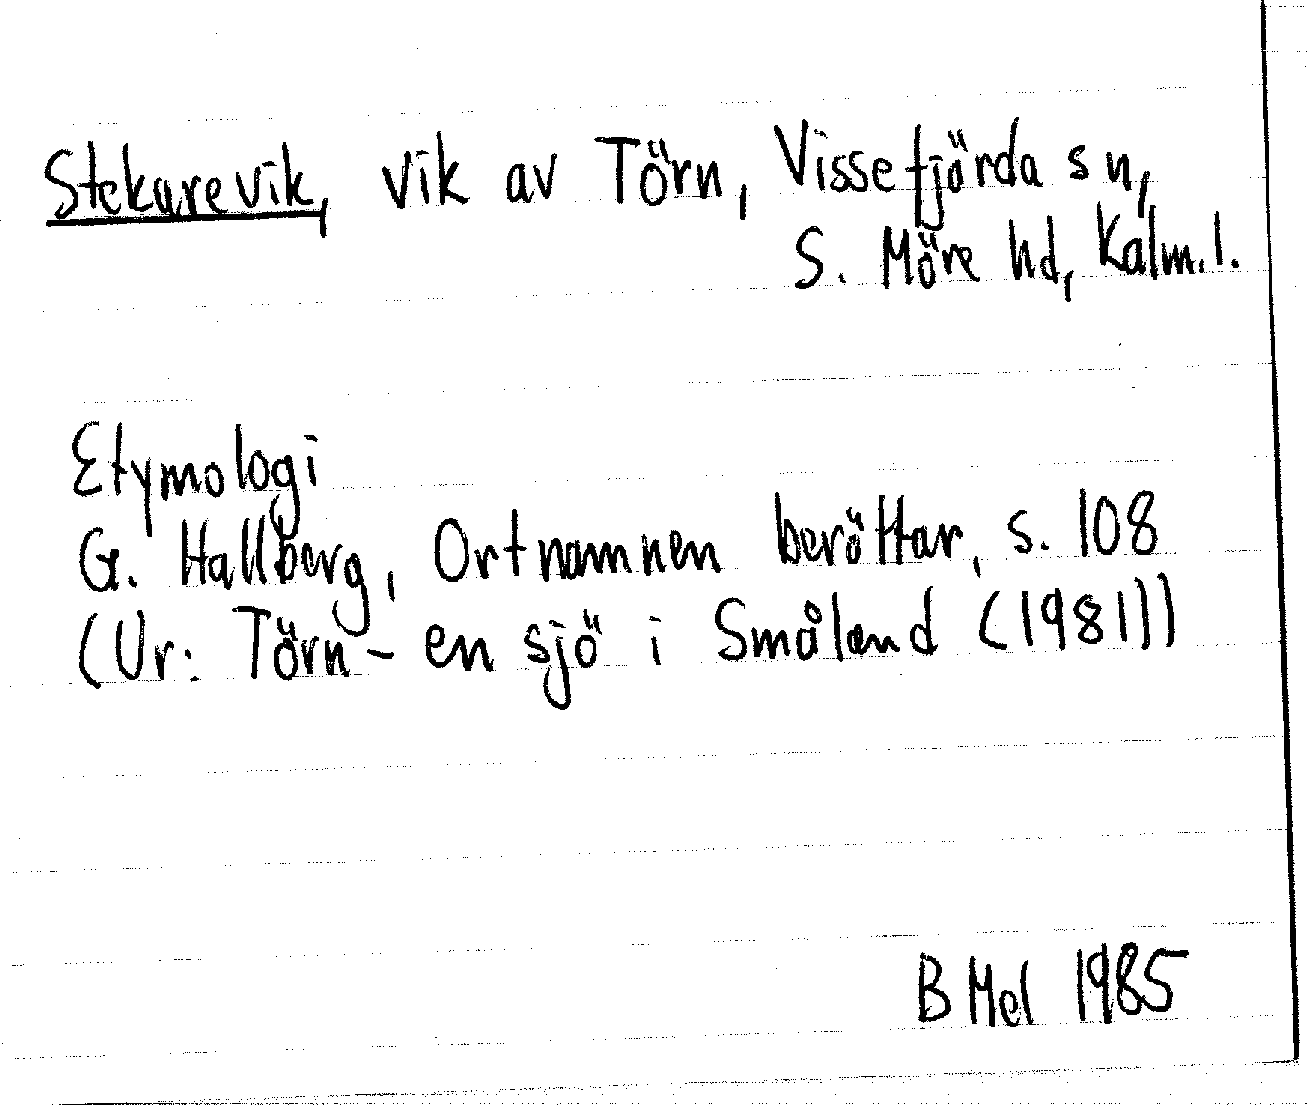 Stekarevik, vik av Törn, Vissefjörda sn,
S. Möre hd, Kalm.l.
Etymologi
G. Hallberg, Ortnamnen berättar, s. 108
(Ur: Törn - en sjö i Småland (1981))
B Mel 1985